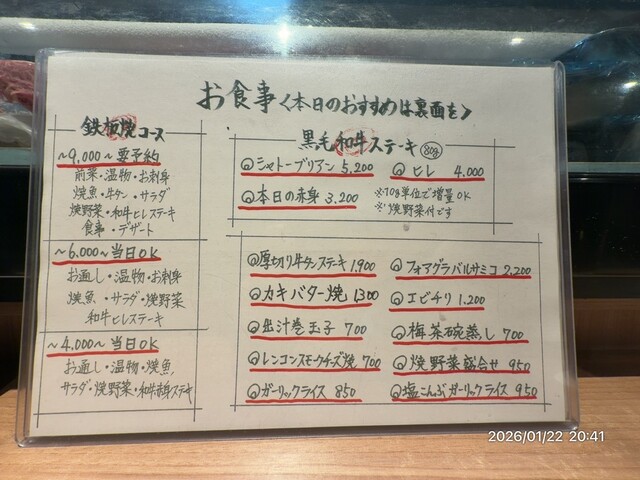 お食事〈本日のおすすめは裏面を〉
鉄板焼コース
~9,000~要予約
前菜・温物・お刺身
焼魚・牛タン・サラダ
焼野菜・和牛ヒレステーキ
食事・デザート
~6,000~当日OK
お通し・温物・お刺身
焼魚・サラダ・焼野菜
和牛ヒレステーキ
~4,000~当日OK
お通し・温物・焼魚
サラダ・焼野菜・和牛赤身ステキ
黒毛和牛ステーキ 80g
シャトーブリアン 5,200
ヒレ 4,000
本日の赤身 3,200
※10g単位で増量OK
※焼野菜付です
厚切り牛タンステーキ 1,900
フォアグラバルサミコ 2,200
カキバター焼 1300
エビチリ 1,200
出汁巻玉子 700
梅茶碗蒸し 700
レンコンスモークチーズ焼 700
焼野菜盛合せ 950
ガーリックライス 850
塩こんぶガーリックライス 950
2026/01/22 20:41